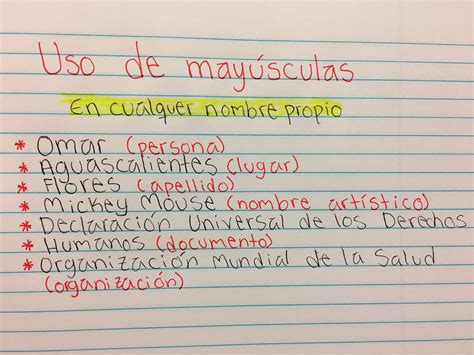 Uso de mayúsculas
En cualquer nombre propio
* Omar (persona)
* Aguascalientes (lugar)
* Flores (apellido)
* Mickey Mouse (nombre artístico)
* Declaración Universal de los Derechos
* Humanos (documento)
* Organización Mundial de la Salud
(organización)